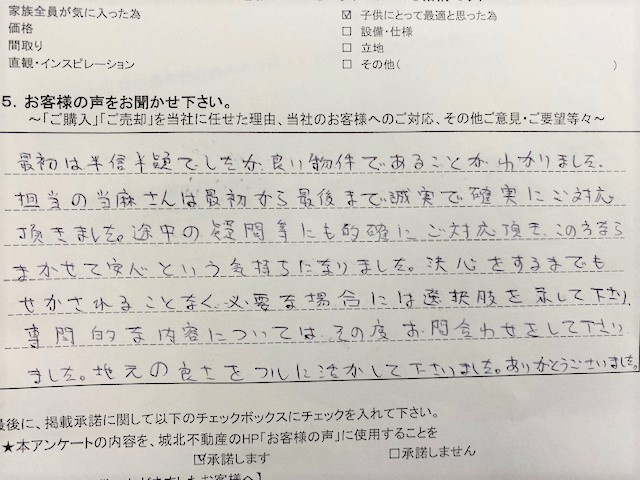 家族全員が気に入った為
☑ 子供にとって最適と思った為
価格
□ 設備・仕様
間取り
□ 立地
直観・インスピレーション
□ その他( )
5. お客様の声をお聞かせ下さい。
～「ご購入」「ご売却」を当社に任せた理由、当社のお客様へのご対応、その他ご意見・ご要望等々～
最初は半信半疑でしたが、良い物件であることがわかりました。
担当の当麻さんは最初から最後まで誠実で確実にご対応
頂きました。途中の疑問等にも的確にご対応頂き、この方なら
まかせて安心という気持ちになりました。決心をするまでも
せかされることなく、必要な場合には選択肢を示して下さり、
専門的な内容については、その度お問合わせをして下さり
ました。地元の良さをフルに活かして下さいました。ありがとうございました。
最後に、掲載承諾に関して以下のチェックボックスにチェックを入れて下さい。
★本アンケートの内容を、城北不動産のHP「お客様の声」に使用することを
☑承諾します
□承諾しません